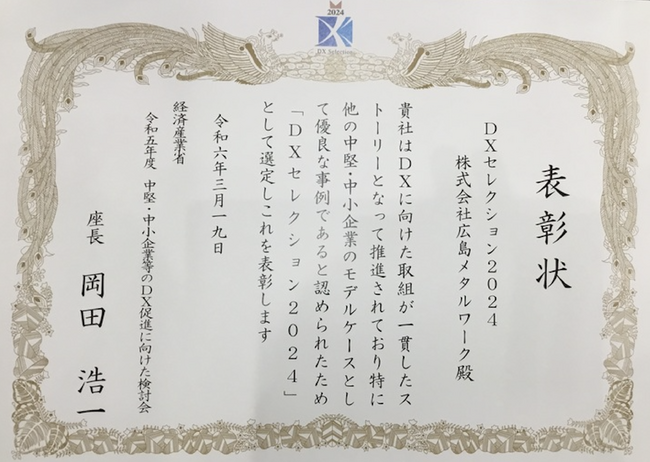 2024
DX Selection
表彰状
DXセレクション2024
株式会社広島メタルワーク殿
貴社はDXに向けた取組が一貫したス
トーリーとなって推進されており特に
他の中堅・中小企業のモデルケースとし
て優良な事例であると認められたため
「DXセレクション2024」
として選定しこれを表彰します
令和六年三月一九日
経済産業省
令和五年度 中堅・中小企業等のDX促進に向けた検討会
座長 岡田 浩一